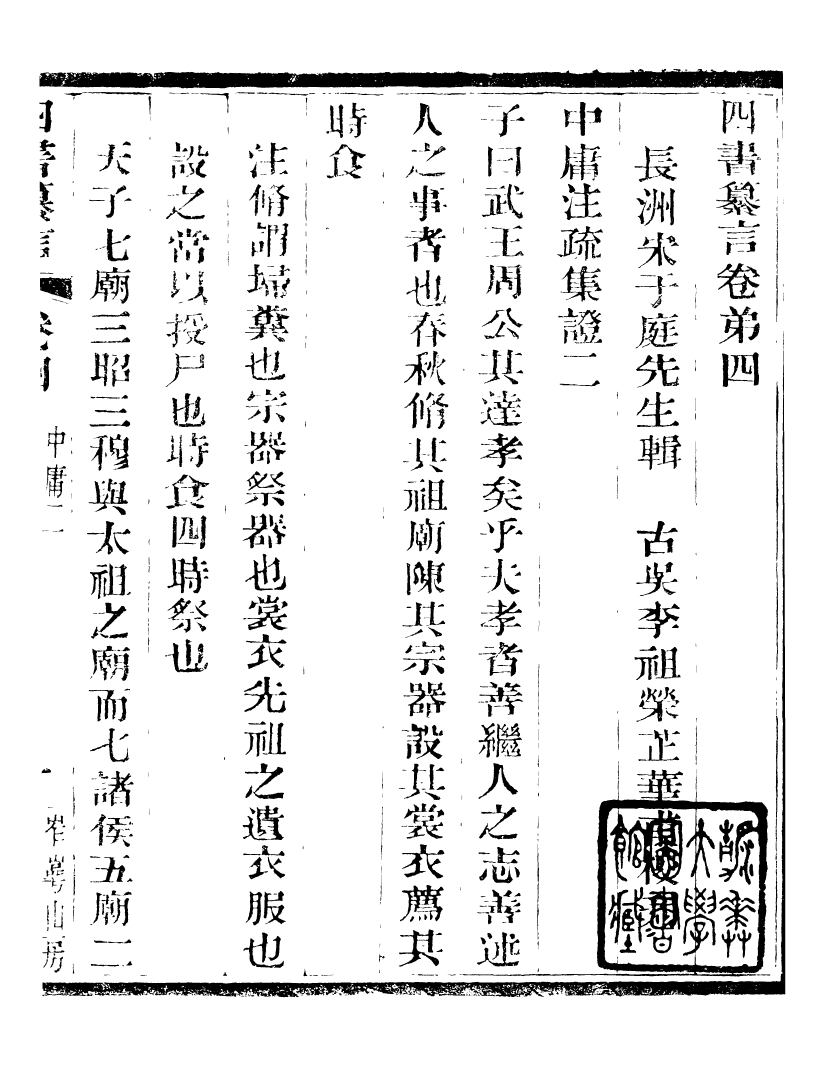 四書纂言卷弟四
長洲宋于庭先生輯　古吳李祖榮芷華
中庸注疏集證二
子曰武王周公其達孝矣乎夫孝者善繼人之志善述
人之事者也春秋脩其祖廟陳其宗器設其裳衣薦其
時食
注脩謂埽糞也宗器祭器也裳衣先祖之遺衣服也
設之當以授尸也時食四時祭也
天子七廟三昭三穆與太祖之廟而七諸侯五廟二
四書纂言　卷四　中庸二　一　山房
大學